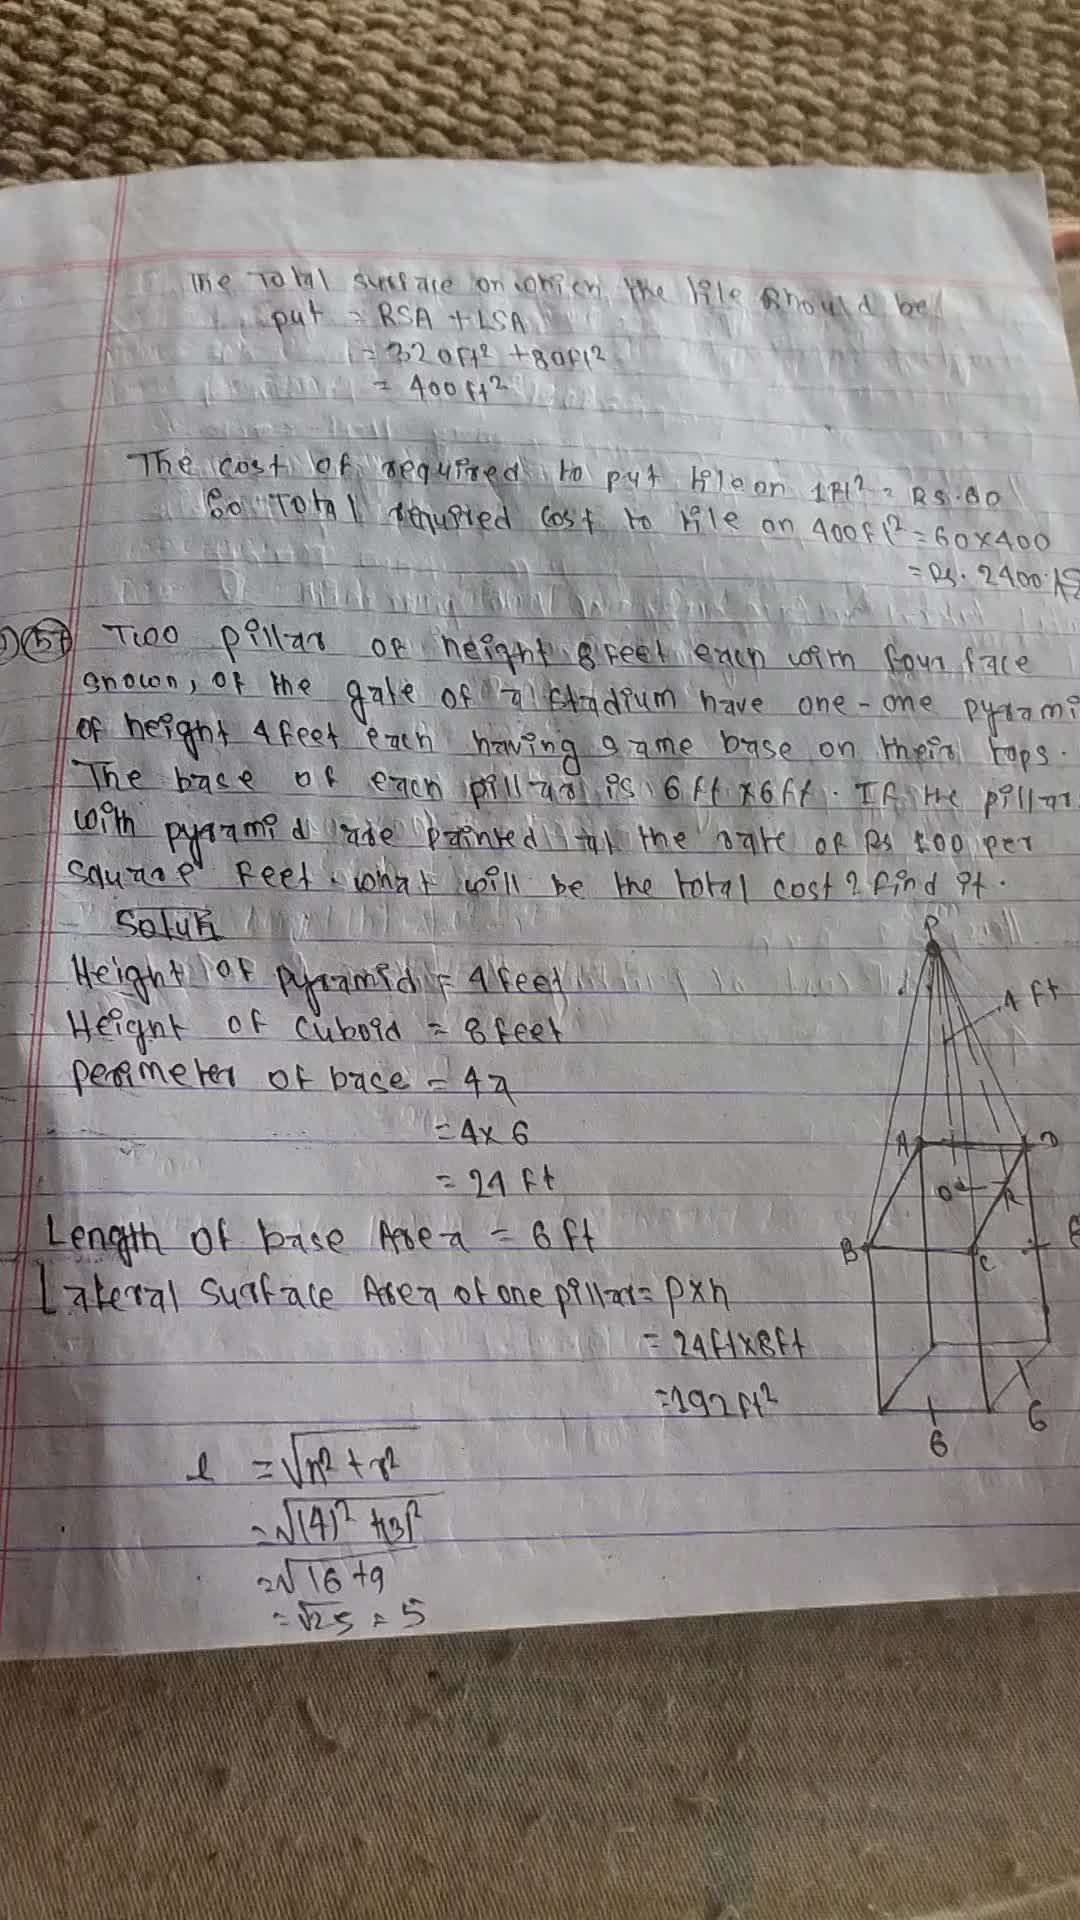 The Total surface on which the tile should be
put = RSA + LSA
= 320ft² + 80ft²
= 400ft²
The cost of required to put tile on 1ft² = Rs.60
So Total required cost to tile on 400ft² = 60×400
= Rs. 2400
57 Two pillar of height 8 feet each with four face
shown, of the gate of a stadium have one-one pyrami
of height 4feet each having same base on their tops.
The base of each pillar is 6ft×6ft. If the pillar
with pyramid are painted at the rate of Rs per
square feet. what will be the total cost? find it.
Solun
Height of pyramid = 4feet
Height of cuboid = 8feet
perimeter of base = 4a
= 4×6
= 24 ft
Length of base Area = 6ft
Lateral surface Area of one pillar = p×h
= 24ft×8ft
= 192ft²
l = √h²+r²
= √(4)²+(3)²
= √16+9
= √25 = 5
P
4 ft
A D
O R
B C 6
6 6